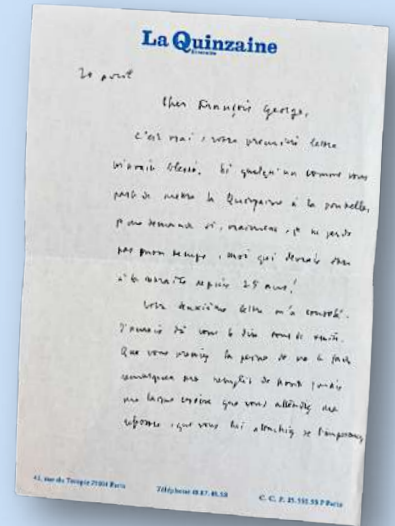 La Quinzaine
littéraire
20 avril
Cher François George,
C'est vrai, votre première lettre
m'avait blessé. Si quelqu'un comme vous
parle de mettre la Quinzaine à la poubelle,
je me demande si, vraiment, je ne perds
pas mon temps, moi qui devrais être
à la retraite depuis 25 ans !
Votre deuxième lettre m'a consolé.
J'aurais dû vous le dire tout de suite.
Que vous preniez la peine de me le faire
remarquer me remplit de honte mais
me laisse croire que vous attendiez ma
réponse, que vous lui attachiez de l'importance
43, rue du Temple 75004 Paris
Téléphone 48.87.48.58
C. C. P. Paris